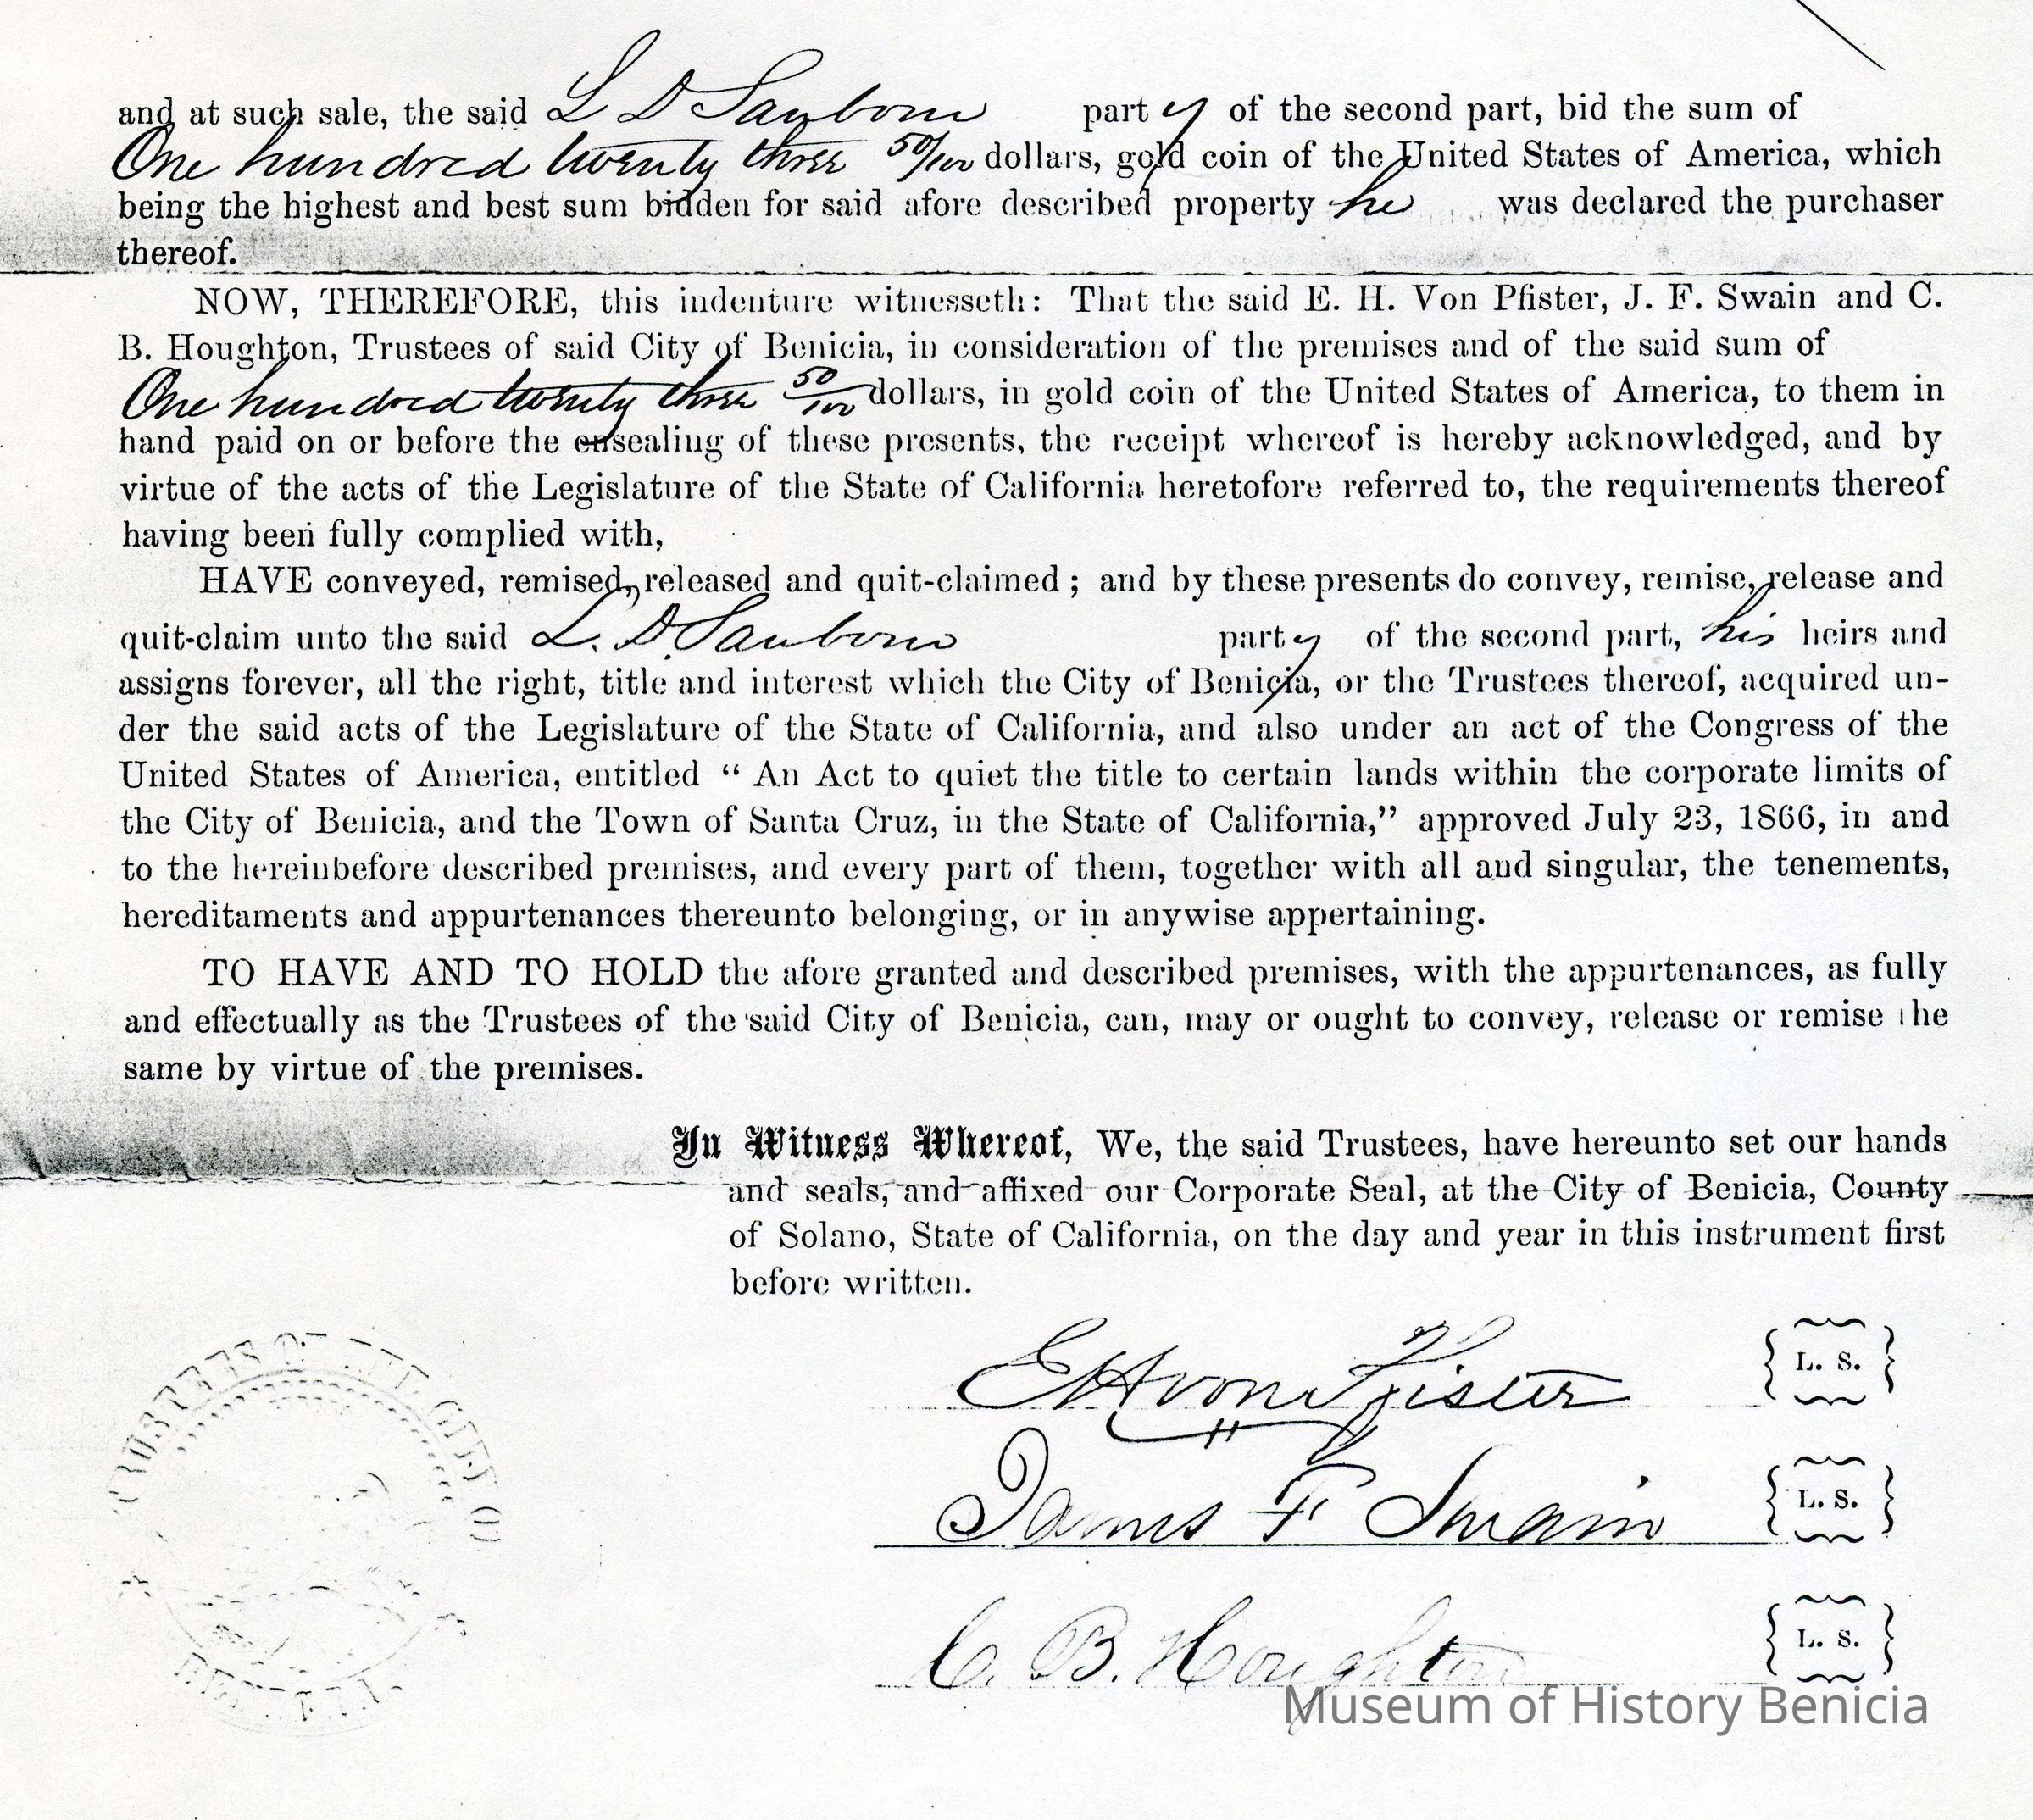 and at such sale, the said L D Sanborn party of the second part, bid the sum of
One hundred twenty three 50/100 dollars, gold coin of the United States of America, which
being the highest and best sum bidden for said afore described property he was declared the purchaser
thereof.
NOW, THEREFORE, this indenture witnesseth: That the said E. H. Von Pfister, J. F. Swain and C.
B. Houghton, Trustees of said City of Benicia, in consideration of the premises and of the said sum of
One hundred twenty three 50/100 dollars, in gold coin of the United States of America, to them in
hand paid on or before the ensealing of these presents, the receipt whereof is hereby acknowledged, and by
virtue of the acts of the Legislature of the State of California heretofore referred to, the requirements thereof
having been fully complied with,
HAVE conveyed, remised, released and quit-claimed; and by these presents do convey, remise, release and
quit-claim unto the said L. D. Sanborn party of the second part, his heirs and
assigns forever, all the right, title and interest which the City of Benicia, or the Trustees thereof, acquired un-
der the said acts of the Legislature of the State of California, and also under an act of the Congress of the
United States of America, entitled “An Act to quiet the title to certain lands within the corporate limits of
the City of Benicia, and the Town of Santa Cruz, in the State of California,” approved July 23, 1866, in and
to the hereinbefore described premises, and every part of them, together with all and singular, the tenements,
hereditaments and appurtenances thereunto belonging, or in anywise appertaining.
TO HAVE AND TO HOLD the afore granted and described premises, with the appurtenances, as fully
and effectually as the Trustees of the said City of Benicia, can, may or ought to convey, release or remise the
same by virtue of the premises.
In Witness Whereof, We, the said Trustees, have hereunto set our hands
and seals, and affixed our Corporate Seal, at the City of Benicia, County
of Solano, State of California, on the day and year in this instrument first
before written.
E H von Pfister L. S.
James F Swain L. S.
C. B. Houghton L. S.
TRUSTEES OF THE CITY OF
BENICIA.
Museum of History Benicia